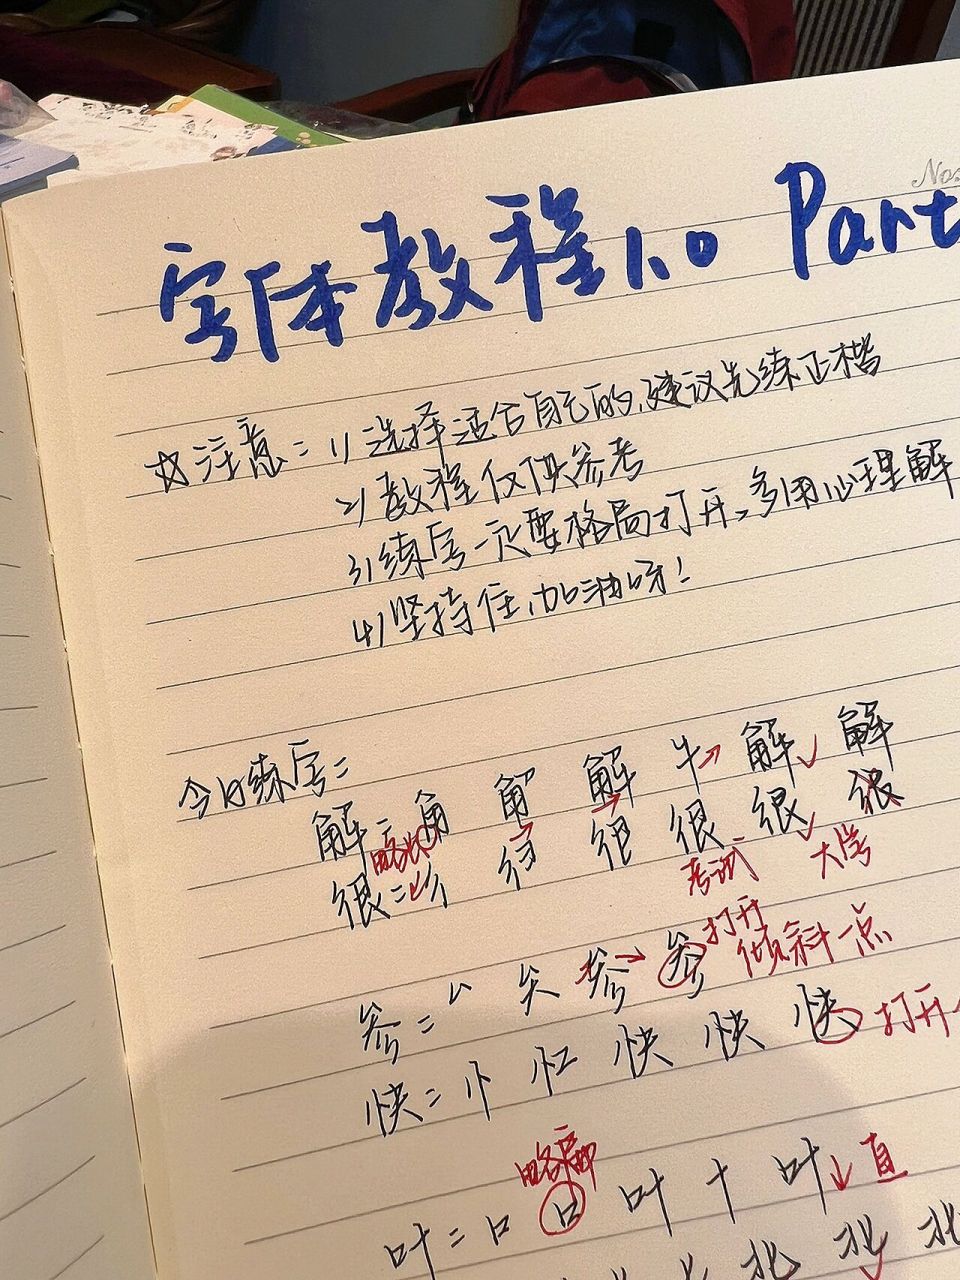 No
字体教程1.0 Part
☆注意：1)选择适合自己的，建议先练正楷
2)教程仅供参考
3)练字一定要格局打开，多用心理解
4)坚持住，加油呀！
今日练字：
解：角 角 解 牛 解 解
略长
很：彳 很 很 很 很
考试 大学
参：厶 参 参
打开
倾斜一点
快：忄 快 快 快
打开
略扁
叶：口 口 叶 十 叶 直
北 北 北